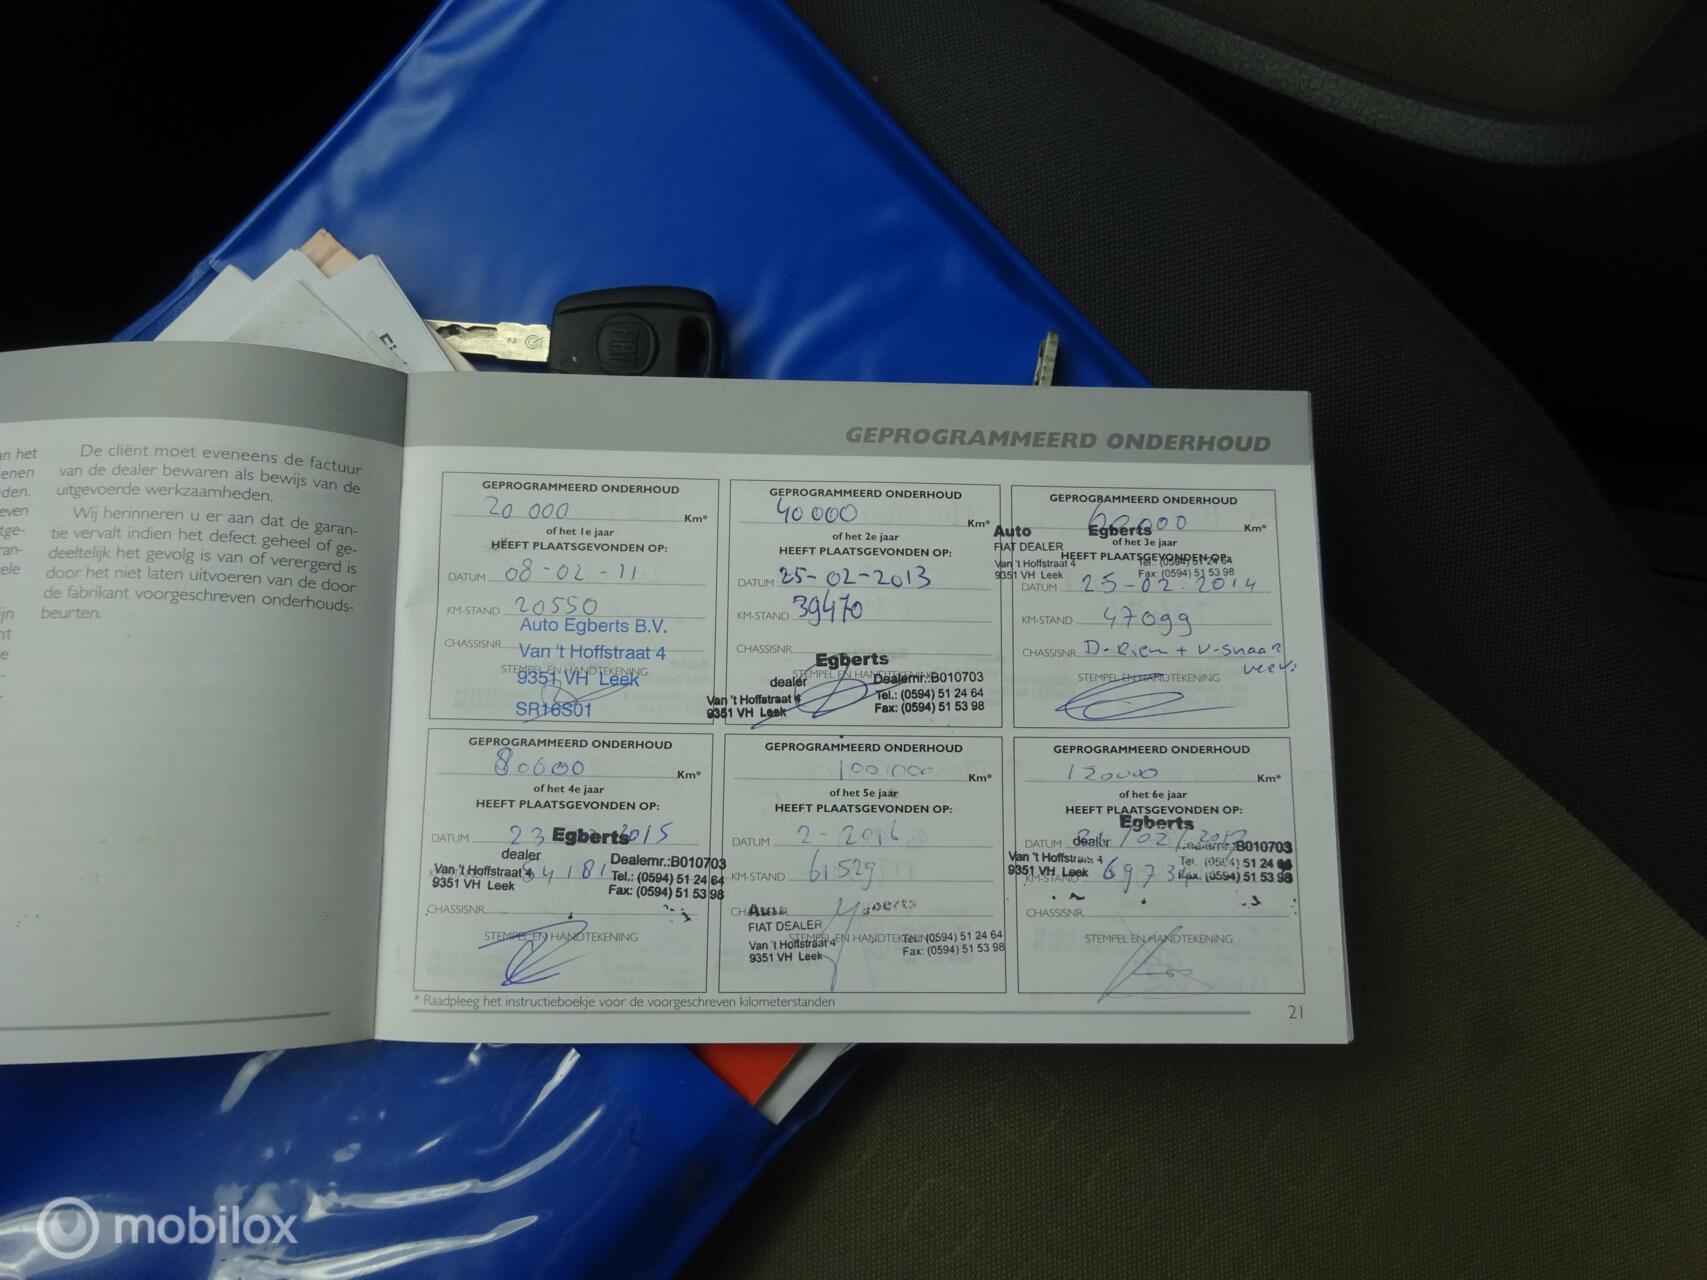 De cliënt moet eveneens de factuur
van de dealer bewaren als bewijs van de
uitgevoerde werkzaamheden.
Wij herinneren u er aan dat de garan-
tie vervalt indien het defect geheel of ge-
deeltelijk het gevolg is van of verergerd is
door het niet laten uitvoeren van de door
de fabrikant voorgeschreven onderhouds-
beurten.
FIAT
GEPROGRAMMEERD ONDERHOUD
GEPROGRAMMEERD ONDERHOUD
20 000 Km*
of het 1e jaar
HEEFT PLAATSGEVONDEN OP:
DATUM 08-02-11
KM-STAND 20550
Auto Egberts B.V.
CHASSISNR.
Van 't Hoffstraat 4
STEMPEL EN HANDTEKENING
9351 VH Leek
SR16S01
GEPROGRAMMEERD ONDERHOUD
40000 Km*
of het 2e jaar
HEEFT PLAATSGEVONDEN OP:
DATUM 25-02-2013
KM-STAND 39470
CHASSISNR.
Egberts
STEMPEL EN HANDTEKENING
dealer Dealernr.:B010703
Van 't Hoffstraat 4 Tel.: (0594) 51 24 64
9351 VH Leek Fax: (0594) 51 53 98
GEPROGRAMMEERD ONDERHOUD
60000 Km*
Auto Egberts
of het 3e jaar
FIAT DEALER
HEEFT PLAATSGEVONDEN OP:
Van 't Hoffstraat 4 Tel.: (0594) 51 24 64
9351 VH Leek Fax: (0594) 51 53 98
DATUM 25-02-2014
KM-STAND 47099
CHASSISNR. D-Riem + V-snaar
STEMPEL EN HANDTEKENING
GEPROGRAMMEERD ONDERHOUD
80000 Km*
of het 4e jaar
HEEFT PLAATSGEVONDEN OP:
DATUM 23 2015
Egberts
dealer Dealernr.:B010703
Van 't Hoffstraat 4 Tel.: (0594) 51 24 64
9351 VH Leek Fax: (0594) 51 53 98
KM-STAND 54181
CHASSISNR.
STEMPEL EN HANDTEKENING
GEPROGRAMMEERD ONDERHOUD
100.000 Km*
of het 5e jaar
HEEFT PLAATSGEVONDEN OP:
DATUM 2-2016
KM-STAND 61529
CHASSISNR.
FIAT DEALER
STEMPEL EN HANDTEKENING
Van 't Hoffstraat 4 Tel.: (0594) 51 24 64
9351 VH Leek Fax: (0594) 51 53 98
GEPROGRAMMEERD ONDERHOUD
120000 Km*
of het 6e jaar
HEEFT PLAATSGEVONDEN OP:
Egberts
DATUM
dealer Dealernr.:B010703
Van 't Hoffstraat 4 Tel.: (0594) 51 24 64
9351 VH Leek Fax: (0594) 51 53 98
KM-STAND
CHASSISNR.
STEMPEL EN HANDTEKENING
* Raadpleeg het instructieboekje voor de voorgeschreven kilometerstanden
21
mobilox